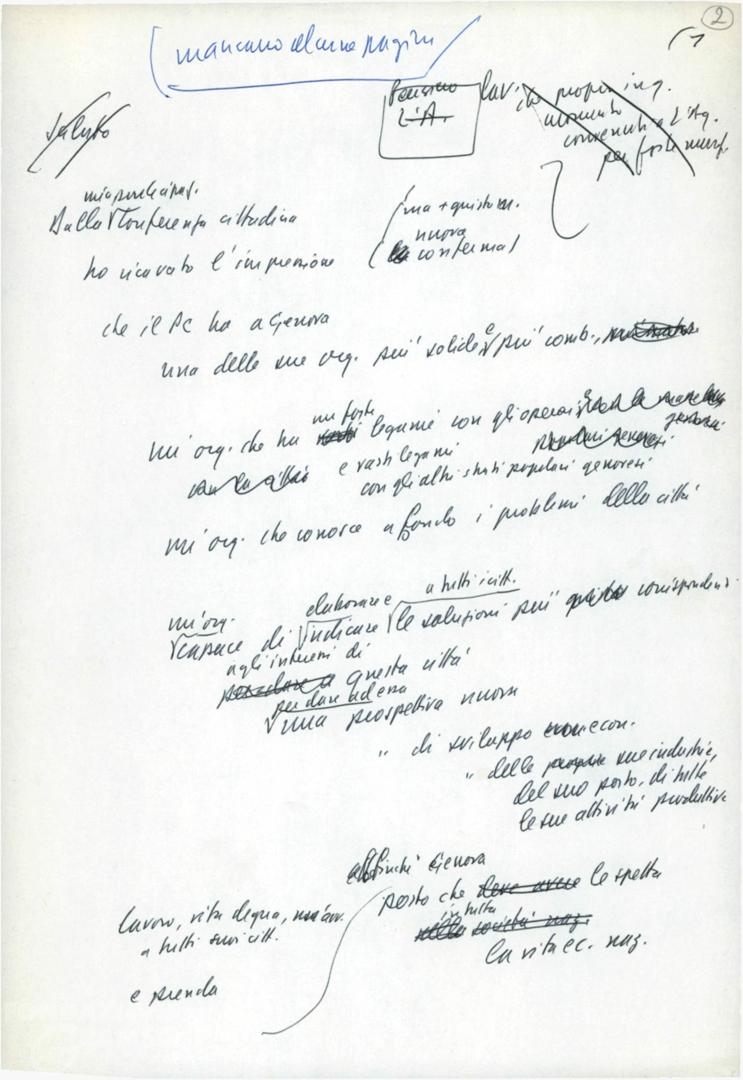 2
mancano alcune pagine
Saluto
Pensiero
L'A.
lav.
momento
per forte manif.
mia partecipaz.
Dalla Conferenza cittadina
(ma + quistioni.
nuova
conferma)
ho ricavato l'impressione
che il PC ha a Genova
una delle sue org. più solide e più comb.,
un forte
un'org. che ha legami con gli operai
e vasti legami
popolari genovesi
con la città
con gli altri strati popolari genovesi
un'org. che conosce a fondo i problemi della città
un'org.
elaborare e
a tutti i citt.
capace di indicare le soluzioni più corrispondenti
agli interessi di
questa città
per dare ad essa
una prospettiva nuova
" di sviluppo econ.
" delle sue industrie,
del suo porto, di tutte
le sue attività produttive
affinché Genova
lavoro, vita degna,
a tutti suoi citt.
e prenda
posto che deve avere le spetta
in tutta
nella società naz.
la vita ec. naz.